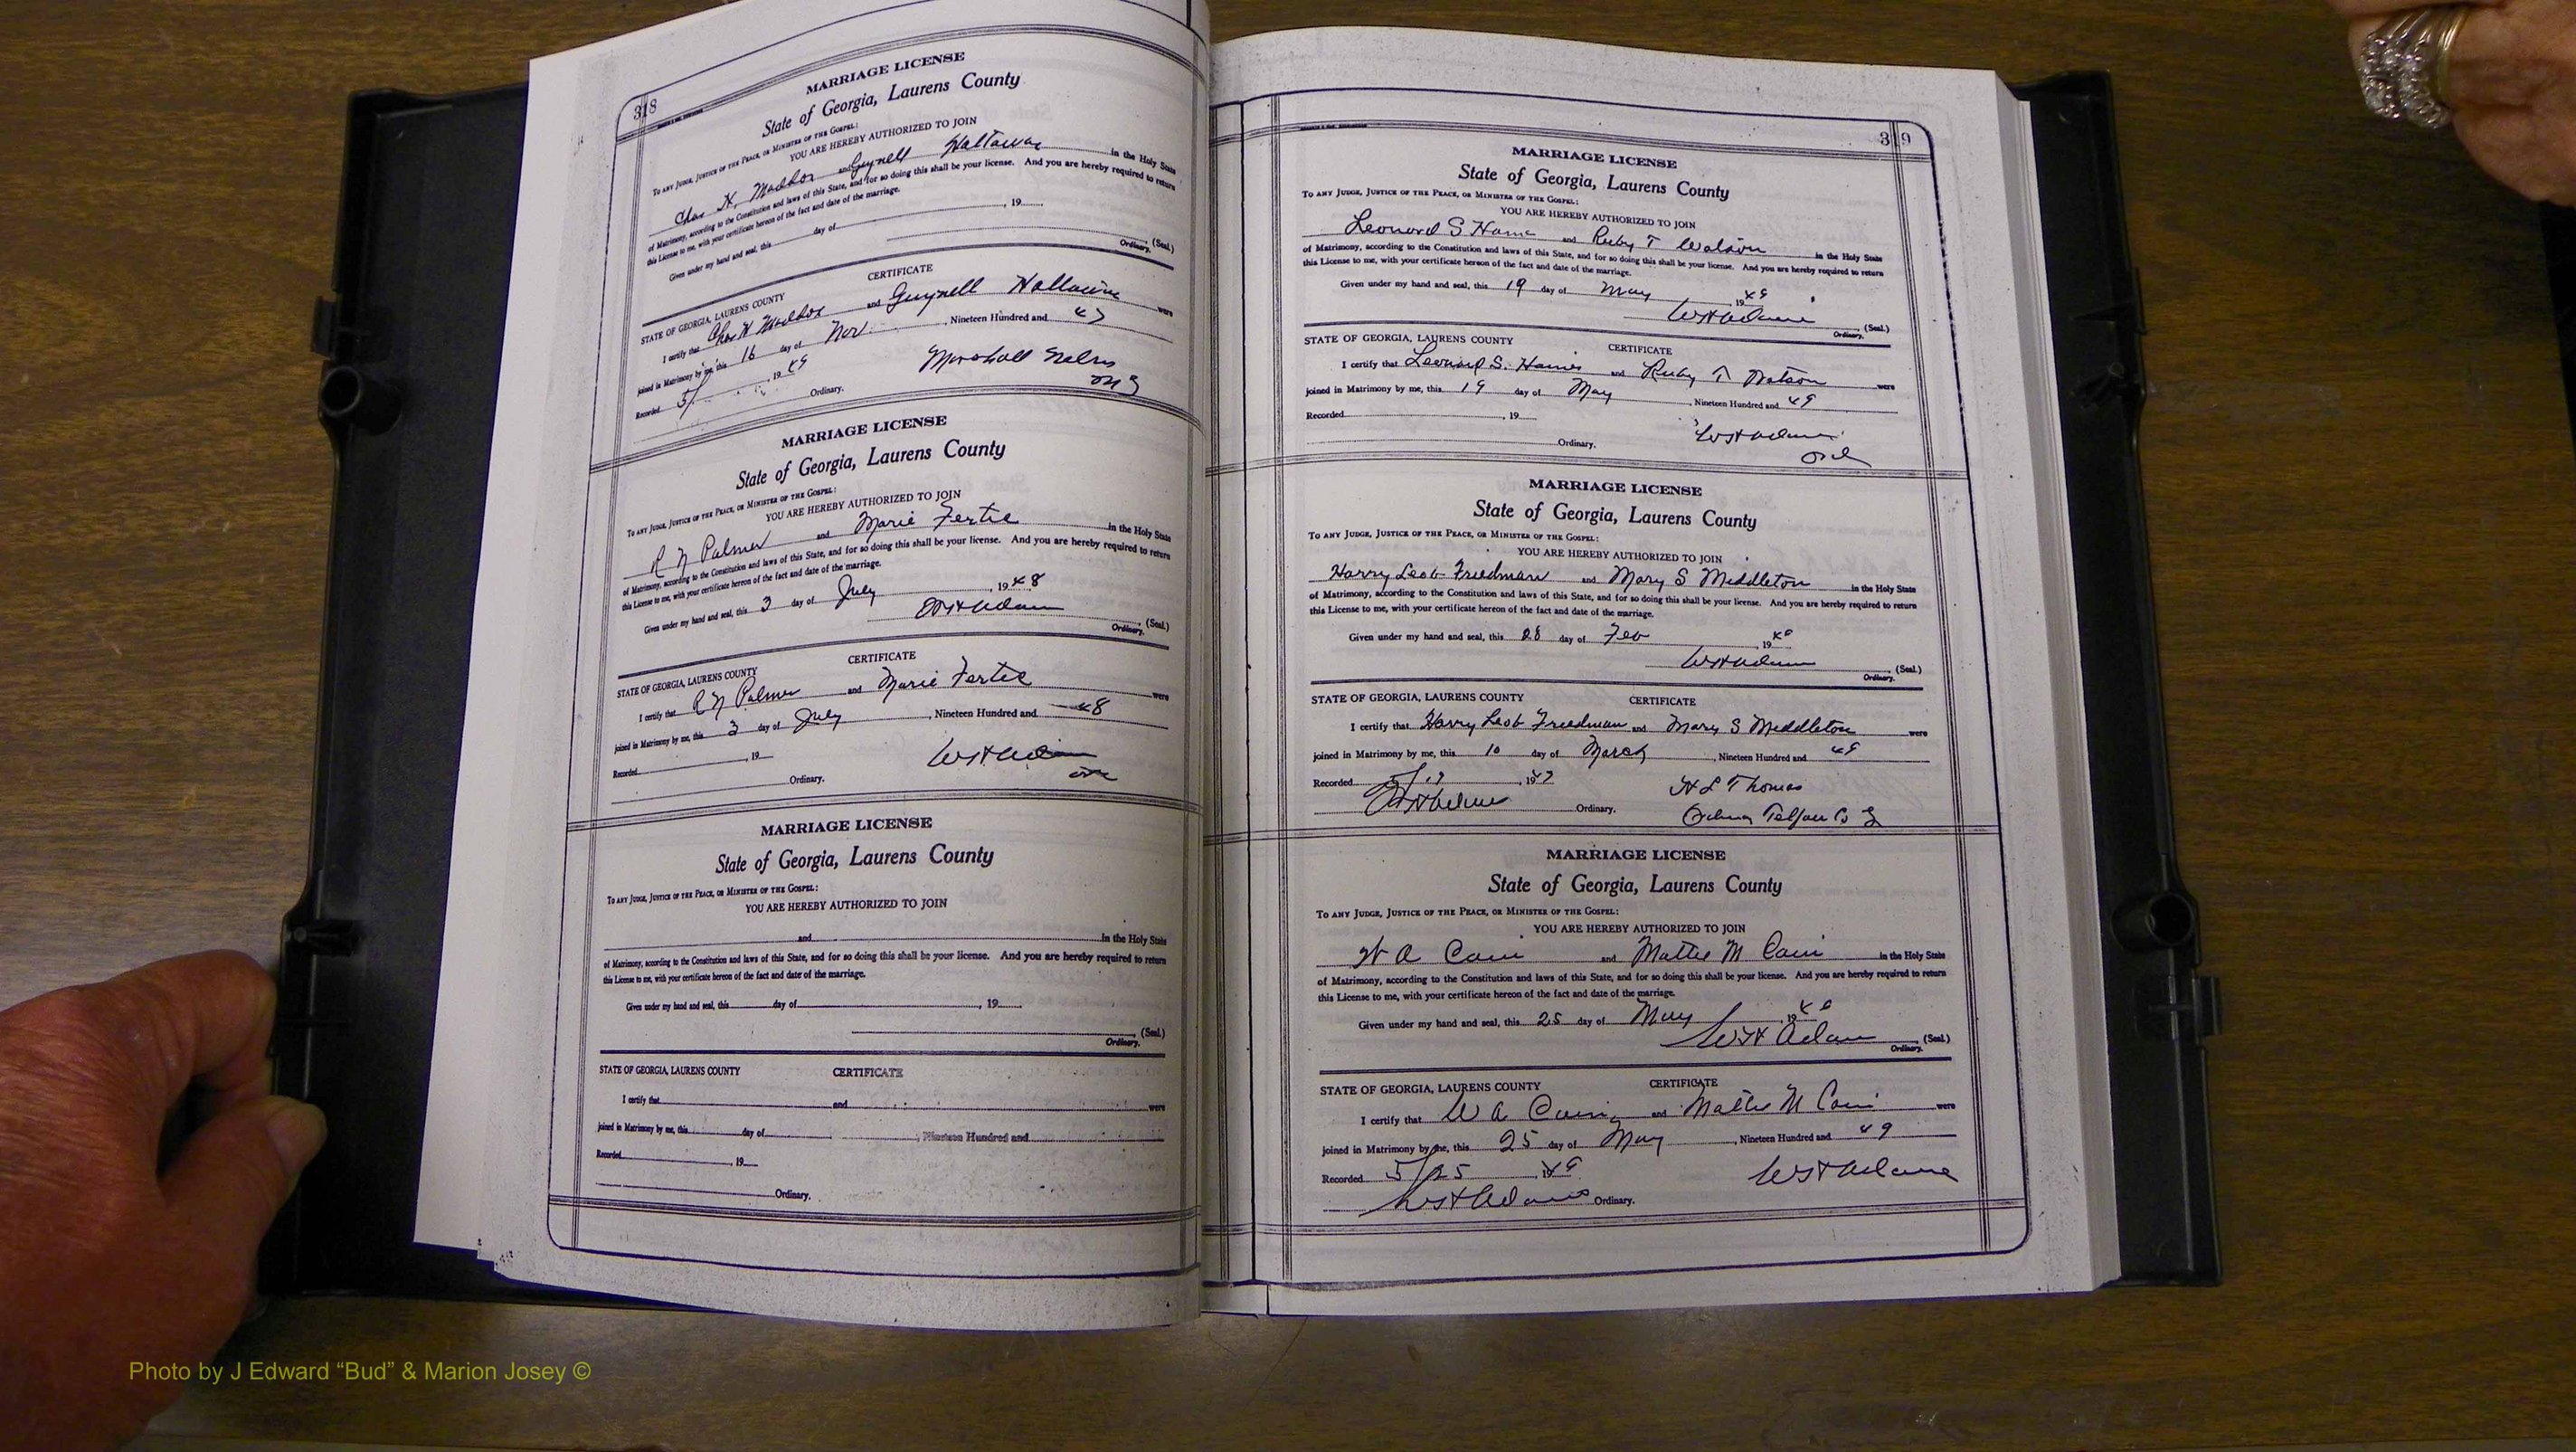 318
MARRIAGE LICENSE
State of Georgia, Laurens County
TO ANY JUDGE, JUSTICE OF THE PEACE, OR MINISTER OF THE GOSPEL:
YOU ARE HEREBY AUTHORIZED TO JOIN
Chas H. Maddox and Guynell in the Holy State
of Matrimony, according to the Constitution and laws of this State, and for so doing this shall be your license. And you are hereby required to return
this License to me, with your certificate hereon of the fact and date of the marriage.
Given under my hand and seal, this day of , 19
(Seal.)
Ordinary.
STATE OF GEORGIA, LAURENS COUNTY CERTIFICATE
I certify that Chas H Maddox and Guynell were
joined in Matrimony by me, this 16 day of Nov. , Nineteen Hundred and 47
Recorded 5/ , 19 49 Marshall
Ordinary.
MARRIAGE LICENSE
State of Georgia, Laurens County
TO ANY JUDGE, JUSTICE OF THE PEACE, OR MINISTER OF THE GOSPEL:
YOU ARE HEREBY AUTHORIZED TO JOIN
R N Palmer and Marie Fertic in the Holy State
of Matrimony, according to the Constitution and laws of this State, and for so doing this shall be your license. And you are hereby required to return
this License to me, with your certificate hereon of the fact and date of the marriage.
Given under my hand and seal, this 3 day of July , 19 48
WH Adams (Seal.)
Ordinary.
STATE OF GEORGIA, LAURENS COUNTY CERTIFICATE
I certify that R N Palmer and Marie Fertic were
joined in Matrimony by me, this 3 day of July , Nineteen Hundred and 48
Recorded , 19 WH Adams
Ordinary.
MARRIAGE LICENSE
State of Georgia, Laurens County
TO ANY JUDGE, JUSTICE OF THE PEACE, OR MINISTER OF THE GOSPEL:
YOU ARE HEREBY AUTHORIZED TO JOIN
and in the Holy State
of Matrimony, according to the Constitution and laws of this State, and for so doing this shall be your license. And you are hereby required to return
this License to me, with your certificate hereon of the fact and date of the marriage.
Given under my hand and seal, this day of , 19
(Seal.)
Ordinary.
STATE OF GEORGIA, LAURENS COUNTY CERTIFICATE
I certify that and were
joined in Matrimony by me, this day of , Nineteen Hundred and
Recorded , 19
Ordinary.
319
MARRIAGE LICENSE
State of Georgia, Laurens County
TO ANY JUDGE, JUSTICE OF THE PEACE, OR MINISTER OF THE GOSPEL:
YOU ARE HEREBY AUTHORIZED TO JOIN
Leonard S and Ruby T Watson in the Holy State
of Matrimony, according to the Constitution and laws of this State, and for so doing this shall be your license. And you are hereby required to return
this License to me, with your certificate hereon of the fact and date of the marriage.
Given under my hand and seal, this 19 day of May , 19 49
WH Adams (Seal.)
Ordinary.
STATE OF GEORGIA, LAURENS COUNTY CERTIFICATE
I certify that Leonard S. and Ruby T Watson were
joined in Matrimony by me, this 19 day of May , Nineteen Hundred and 49
Recorded , 19 WH Adams
Ordinary. Ord
MARRIAGE LICENSE
State of Georgia, Laurens County
TO ANY JUDGE, JUSTICE OF THE PEACE, OR MINISTER OF THE GOSPEL:
YOU ARE HEREBY AUTHORIZED TO JOIN
Harry Leob Friedman and Mary S Middleton in the Holy State
of Matrimony, according to the Constitution and laws of this State, and for so doing this shall be your license. And you are hereby required to return
this License to me, with your certificate hereon of the fact and date of the marriage.
Given under my hand and seal, this 28 day of Feb , 19
WH Adams (Seal.)
Ordinary.
STATE OF GEORGIA, LAURENS COUNTY CERTIFICATE
I certify that Harry Leob Friedman and Mary S Middleton were
joined in Matrimony by me, this 10 day of March , Nineteen Hundred and 49
Recorded , 19 H L Thomas
WH Adams Ordinary. Telfair Co
MARRIAGE LICENSE
State of Georgia, Laurens County
TO ANY JUDGE, JUSTICE OF THE PEACE, OR MINISTER OF THE GOSPEL:
YOU ARE HEREBY AUTHORIZED TO JOIN
W A Cain and Mattie M Cain in the Holy State
of Matrimony, according to the Constitution and laws of this State, and for so doing this shall be your license. And you are hereby required to return
this License to me, with your certificate hereon of the fact and date of the marriage.
Given under my hand and seal, this 25 day of May , 19
WH Adams (Seal.)
Ordinary.
STATE OF GEORGIA, LAURENS COUNTY CERTIFICATE
I certify that W A Cain and Mattie M Cain were
joined in Matrimony by me, this 25 day of May , Nineteen Hundred and 49
Recorded 5/25 , 19 49 WH Adams
WH Adams Ordinary.
Photo by J Edward “Bud” & Marion Josey ©